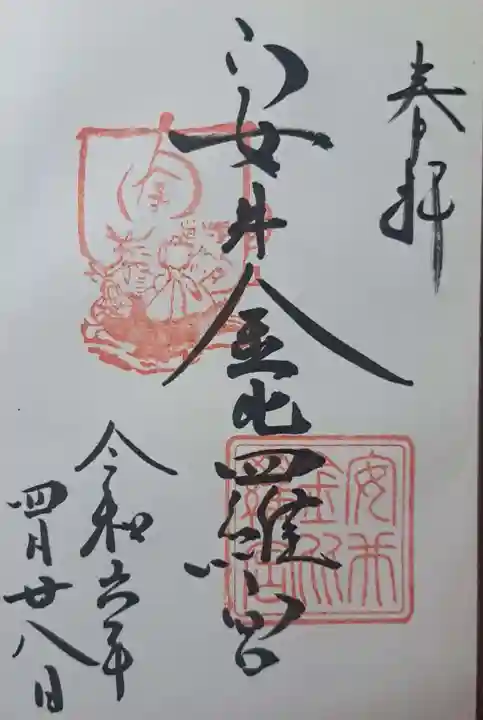 奉拝
安井金比羅宮
令和六年
四月廿八日
安井
金比
羅宮